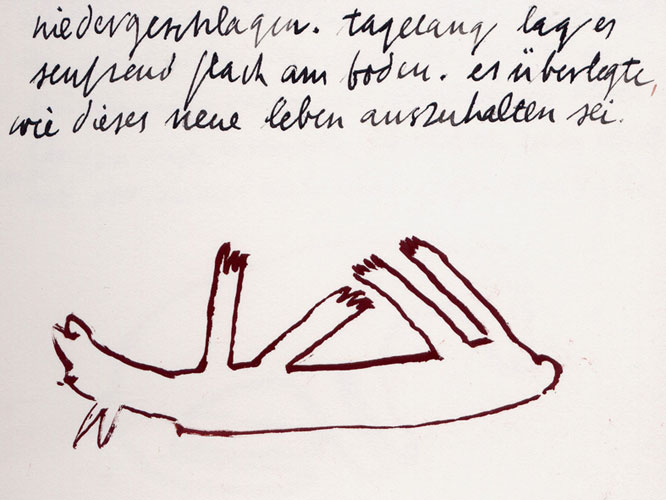 niedergeschlagen. tagelang lag es
seufzend flach am boden. es überlegte,
wie dieses neue leben auszuhalten sei.